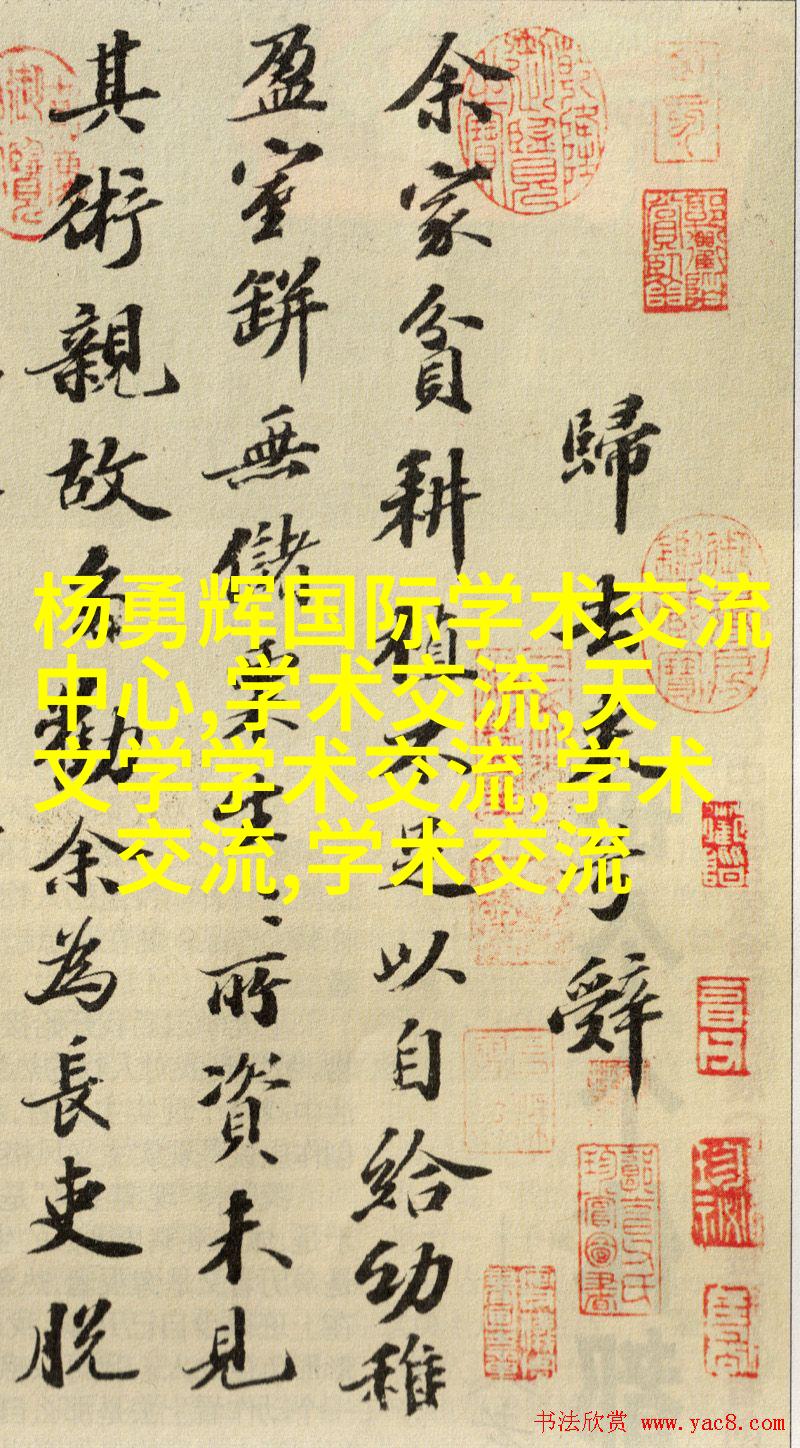 歸去来兮辭
余家貧耕植不足以自給幼稚
盈室缾無儲粟生〻所資未見
其術親故多勸余為長吏脱
杨勇辉国际学术交流
中心,学术交流,天
文学学术交流,学术
交流,学术交流
书法欣赏 www.yac8.com